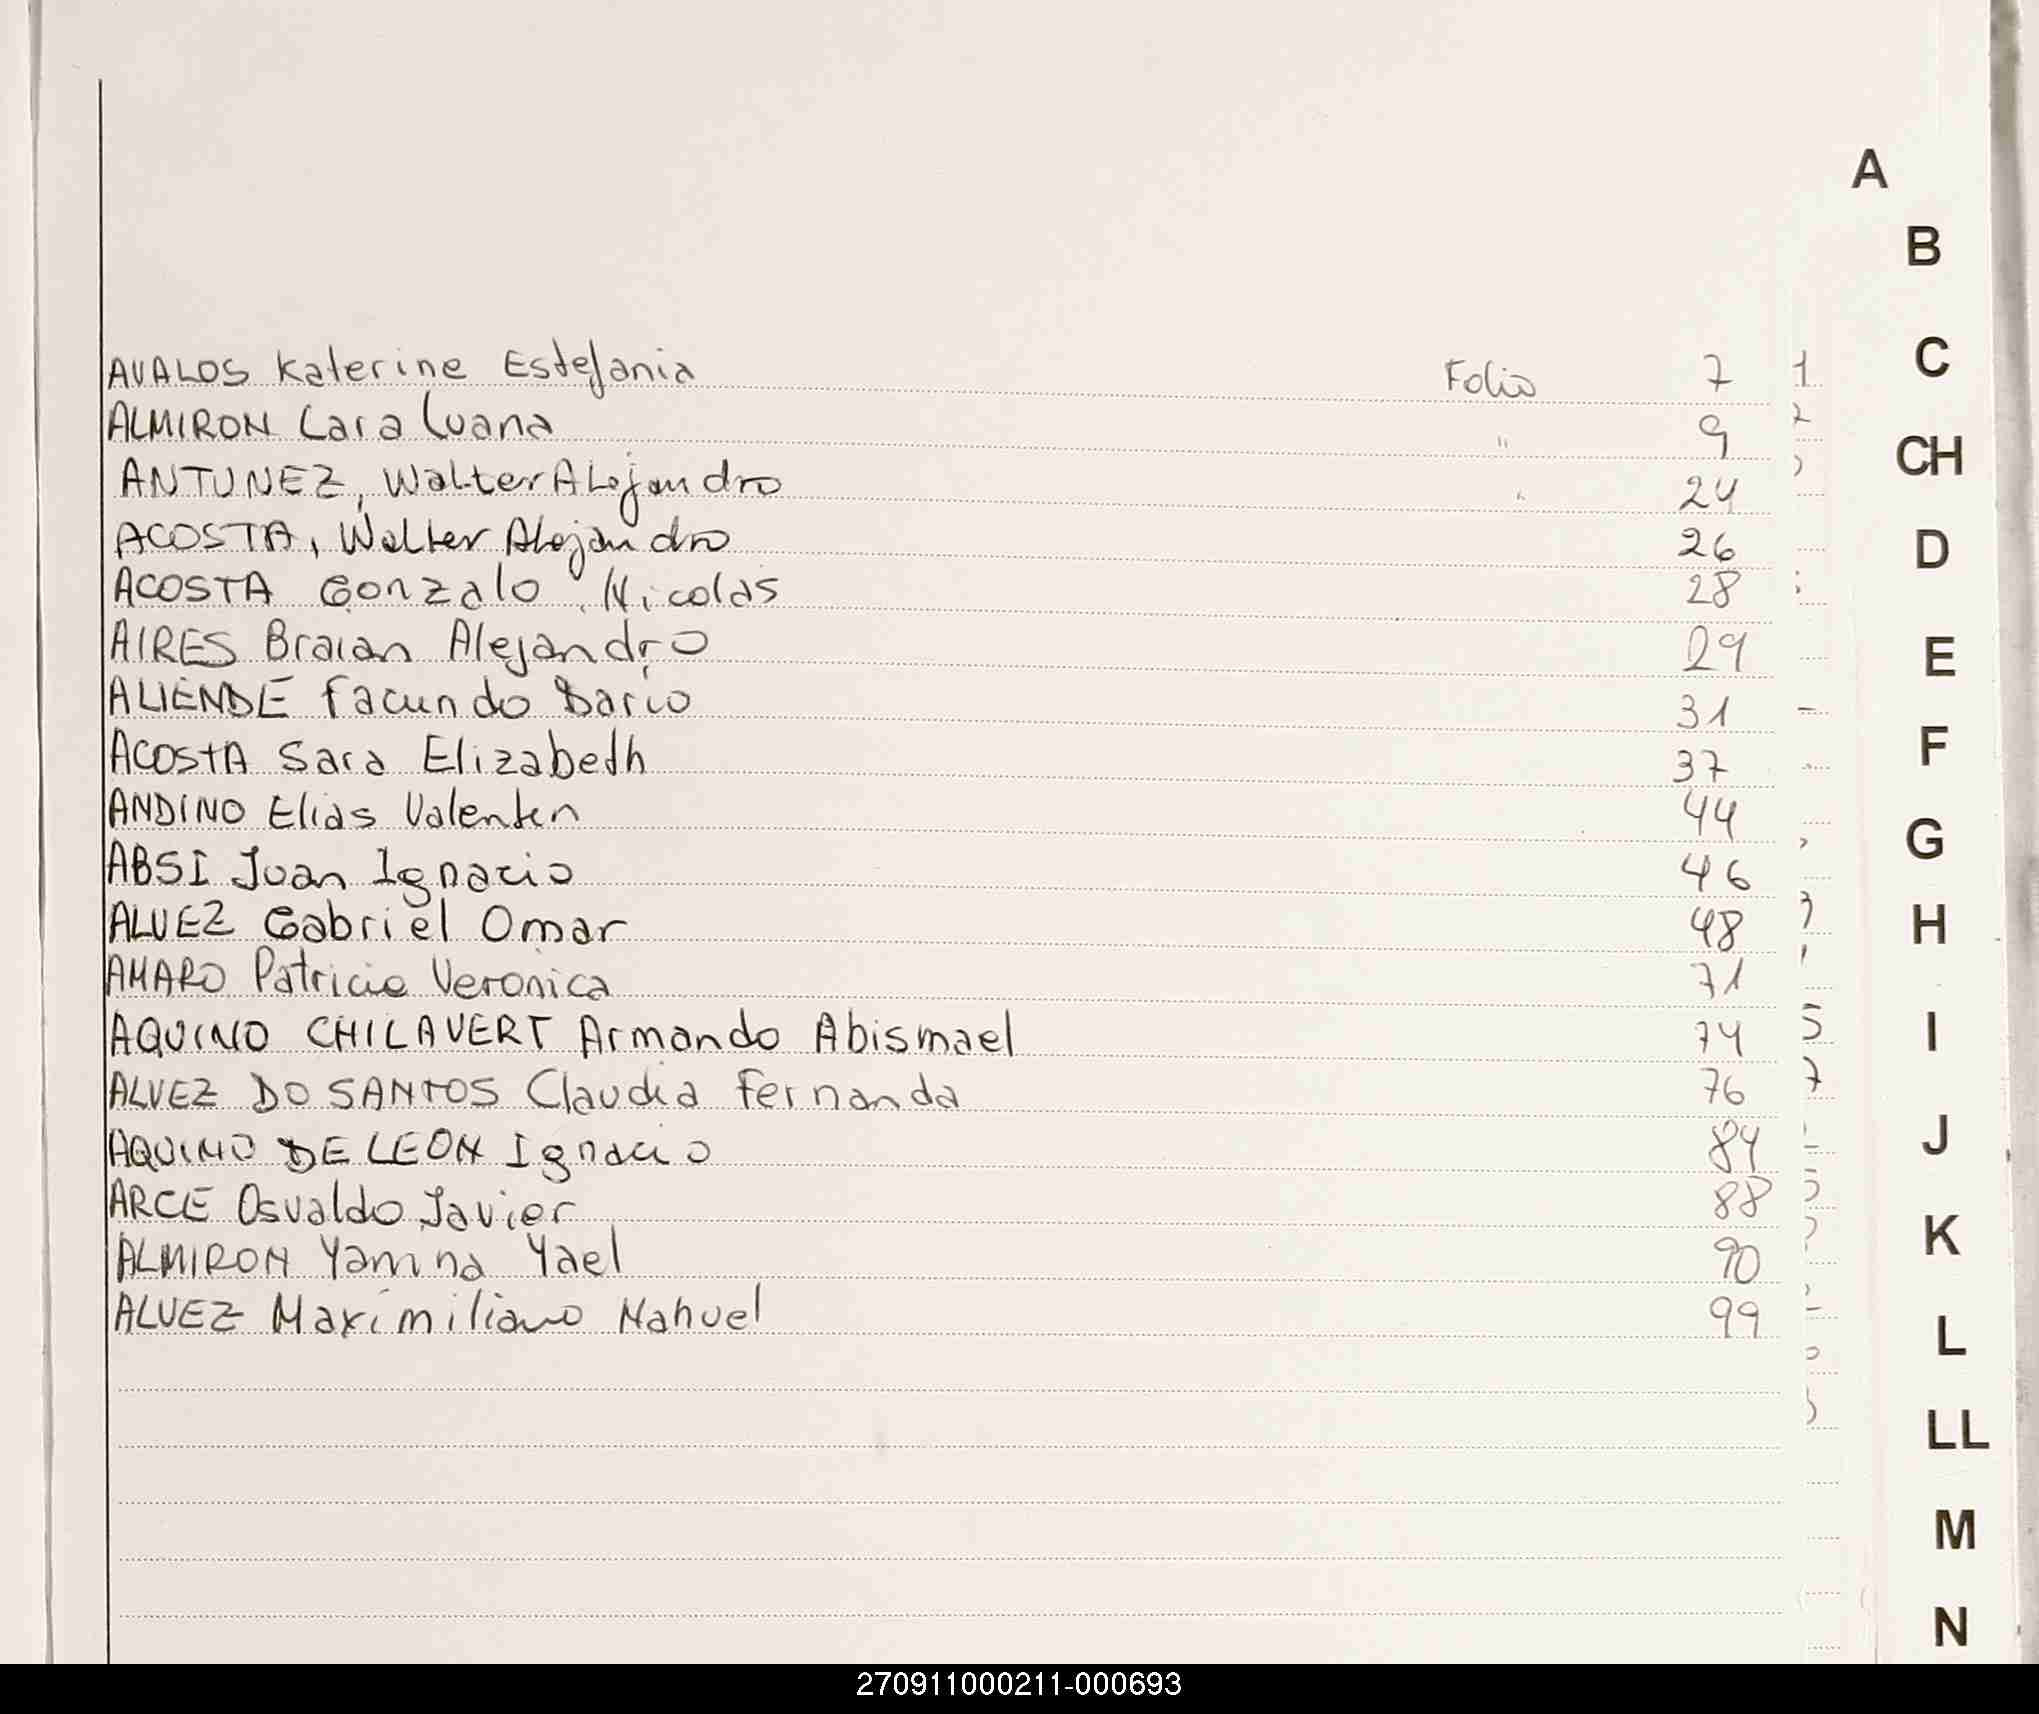 A
B
C
CH
D
E
F
G
H
I
J
K
L
LL
M
N
AVALOS Katerine Estefania Folio 7
ALMIRON Lara Luana " 9
ANTUNEZ, Walter Alejandro " 24
ACOSTA, Walter Alejandro 26
ACOSTA Gonzalo Nicolás 28
AIRES Braian Alejandro 29
ALIENDE Facundo Dario 31
ACOSTA Sara Elizabeth 37
ANDINO Elias Valentin 44
ABSI Juan Ignacio 46
ALVEZ Gabriel Omar 48
AMARO Patricia Veronica 71
AQUINO CHILAVERT Armando Abismael 74
ALVEZ DO SANTOS Claudia Fernanda 76
AQUINO DE LEON Ignacio 84
ARCE Osvaldo Javier 88
ALMIRON Yamina Yael 90
ALVEZ Maximiliano Nahuel 99
270911000211-000693